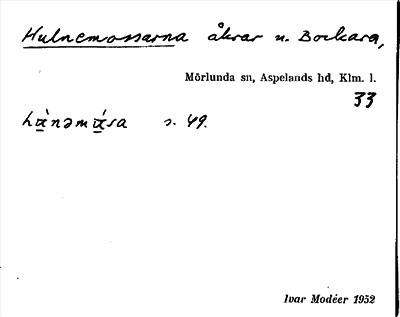 Hulnemossarna åkrar u. Bockara,
Mörlunda sn, Aspelands hd, Klm. l.
33
s. 49.
Ivar Modéer 1952